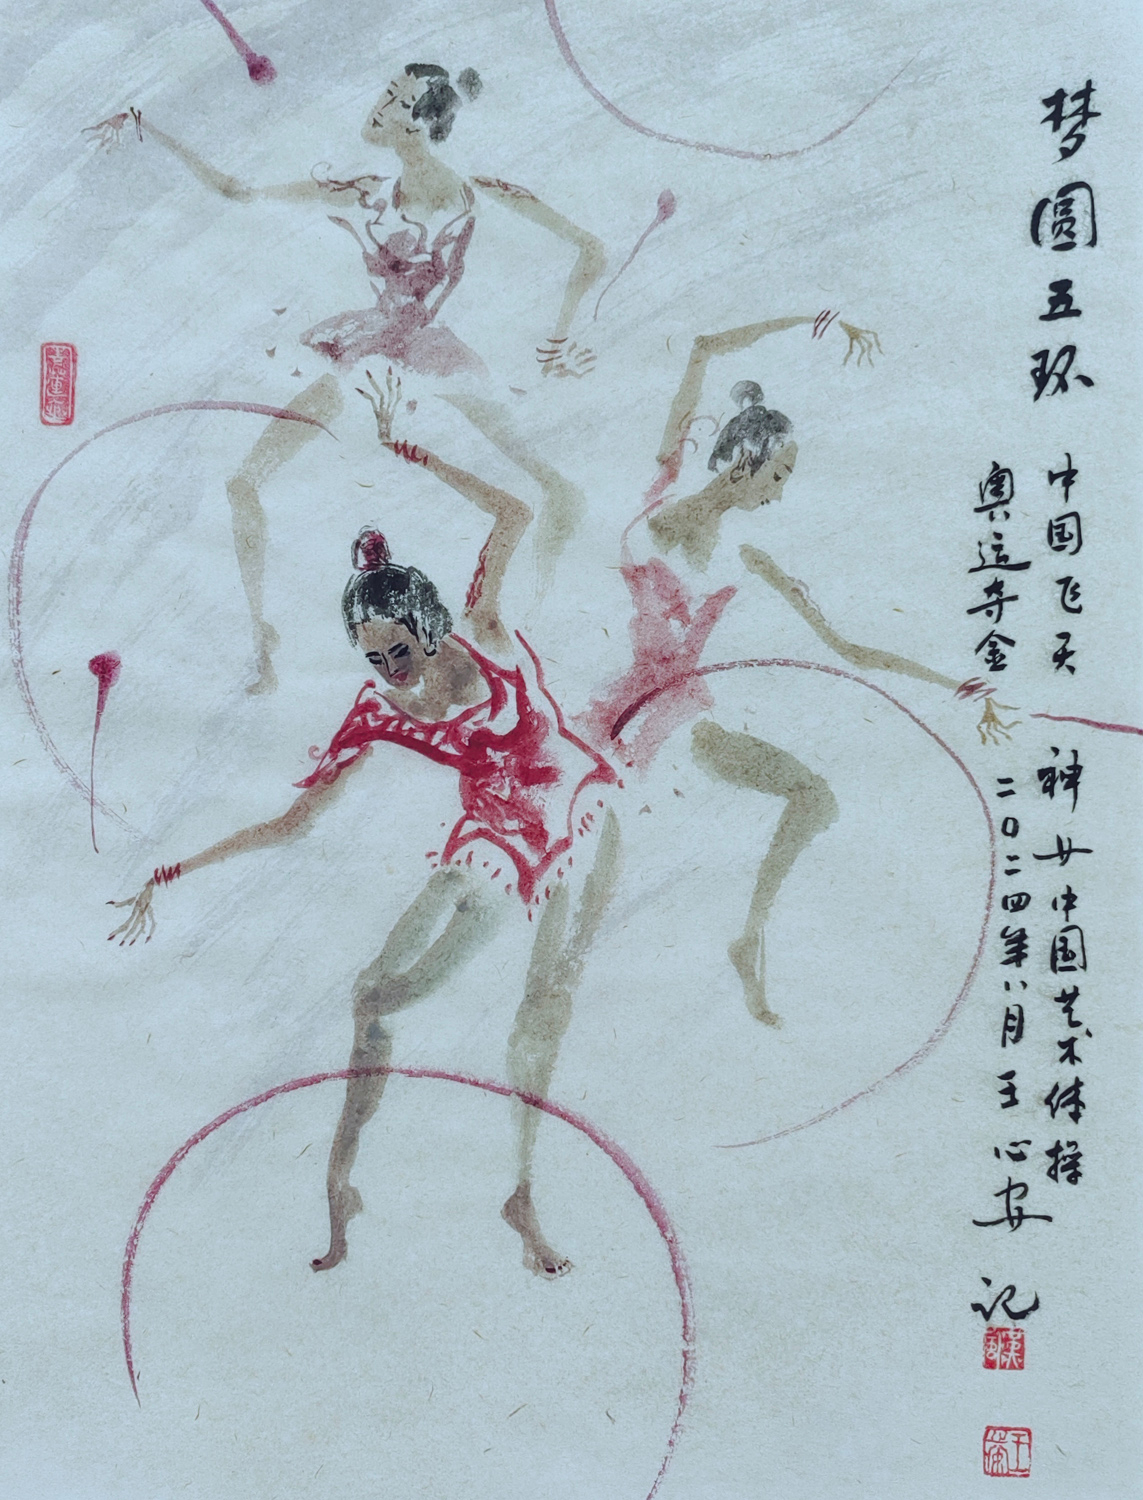 梦圆五环 中国飞天 神女中国艺术体操
奥运夺金 二〇二四年八月王心安 记